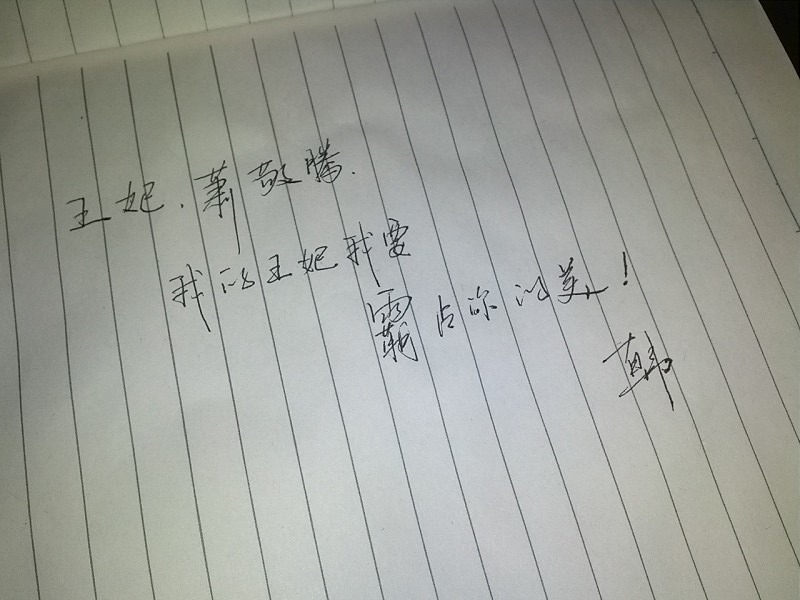 王妃.萧敬腾.
我的王妃我要
霸占你的美!
韩